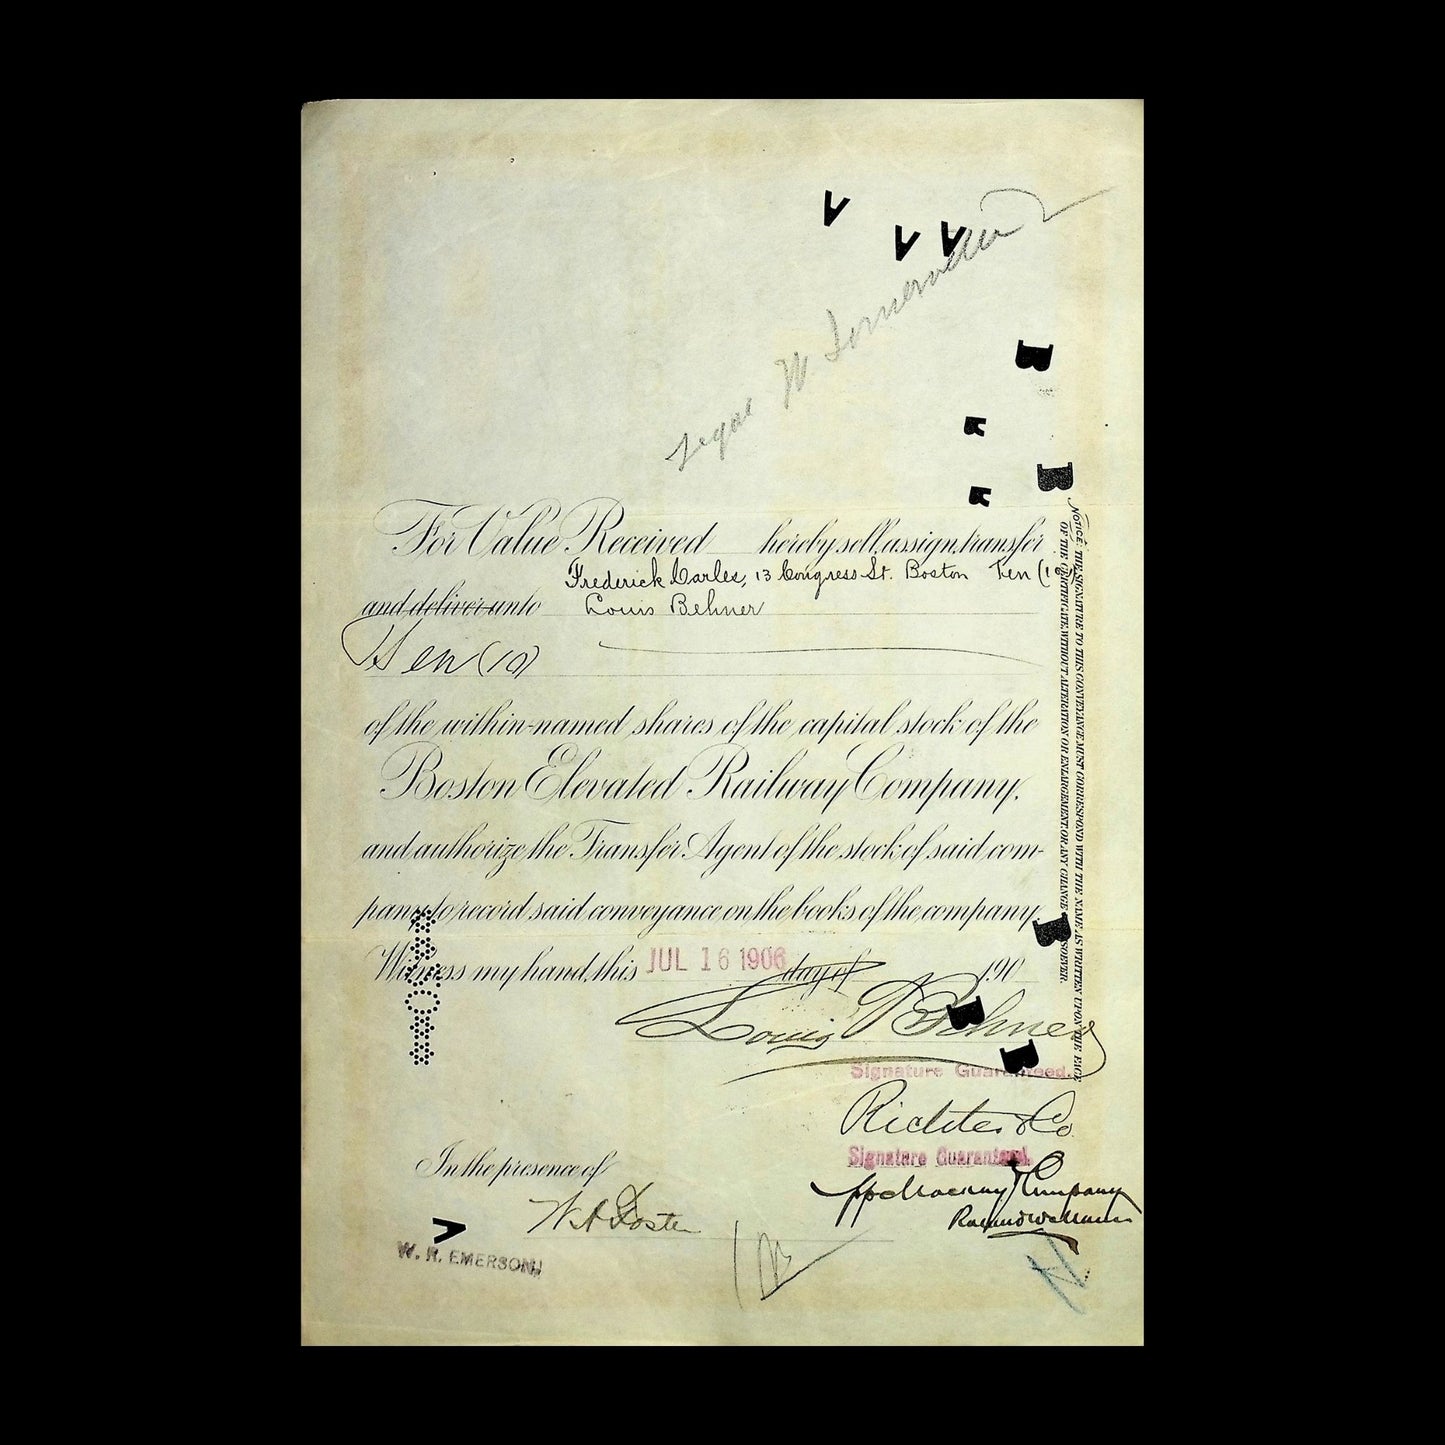 For Value Received hereby sell, assign, transfer
Frederick Carles, 13 Congress St. Boston Ten (10
and deliver unto Louis Behner
Ten (10)
of the within-named shares of the capital stock of the
Boston Elevated Railway Company,
and authorize the Transfer Agent of the stock of said com-
pany to record said conveyance on the books of the company.
Witness my hand, this JUL 16 1906 day of 190
Louis Behner
Signature Guaranteed.
Richter & Co
Signature Guaranteed.
& Company
In the presence of
W A Foster
W. R. EMERSON
NOTICE. THE SIGNATURE TO THIS CONVEYANCE MUST CORRESPOND WITH THE NAME AS WRITTEN UPON THE FACE
OF THE CERTIFICATE, WITHOUT ALTERATION OR ENLARGEMENT OR ANY CHANGE WHATSOEVER.